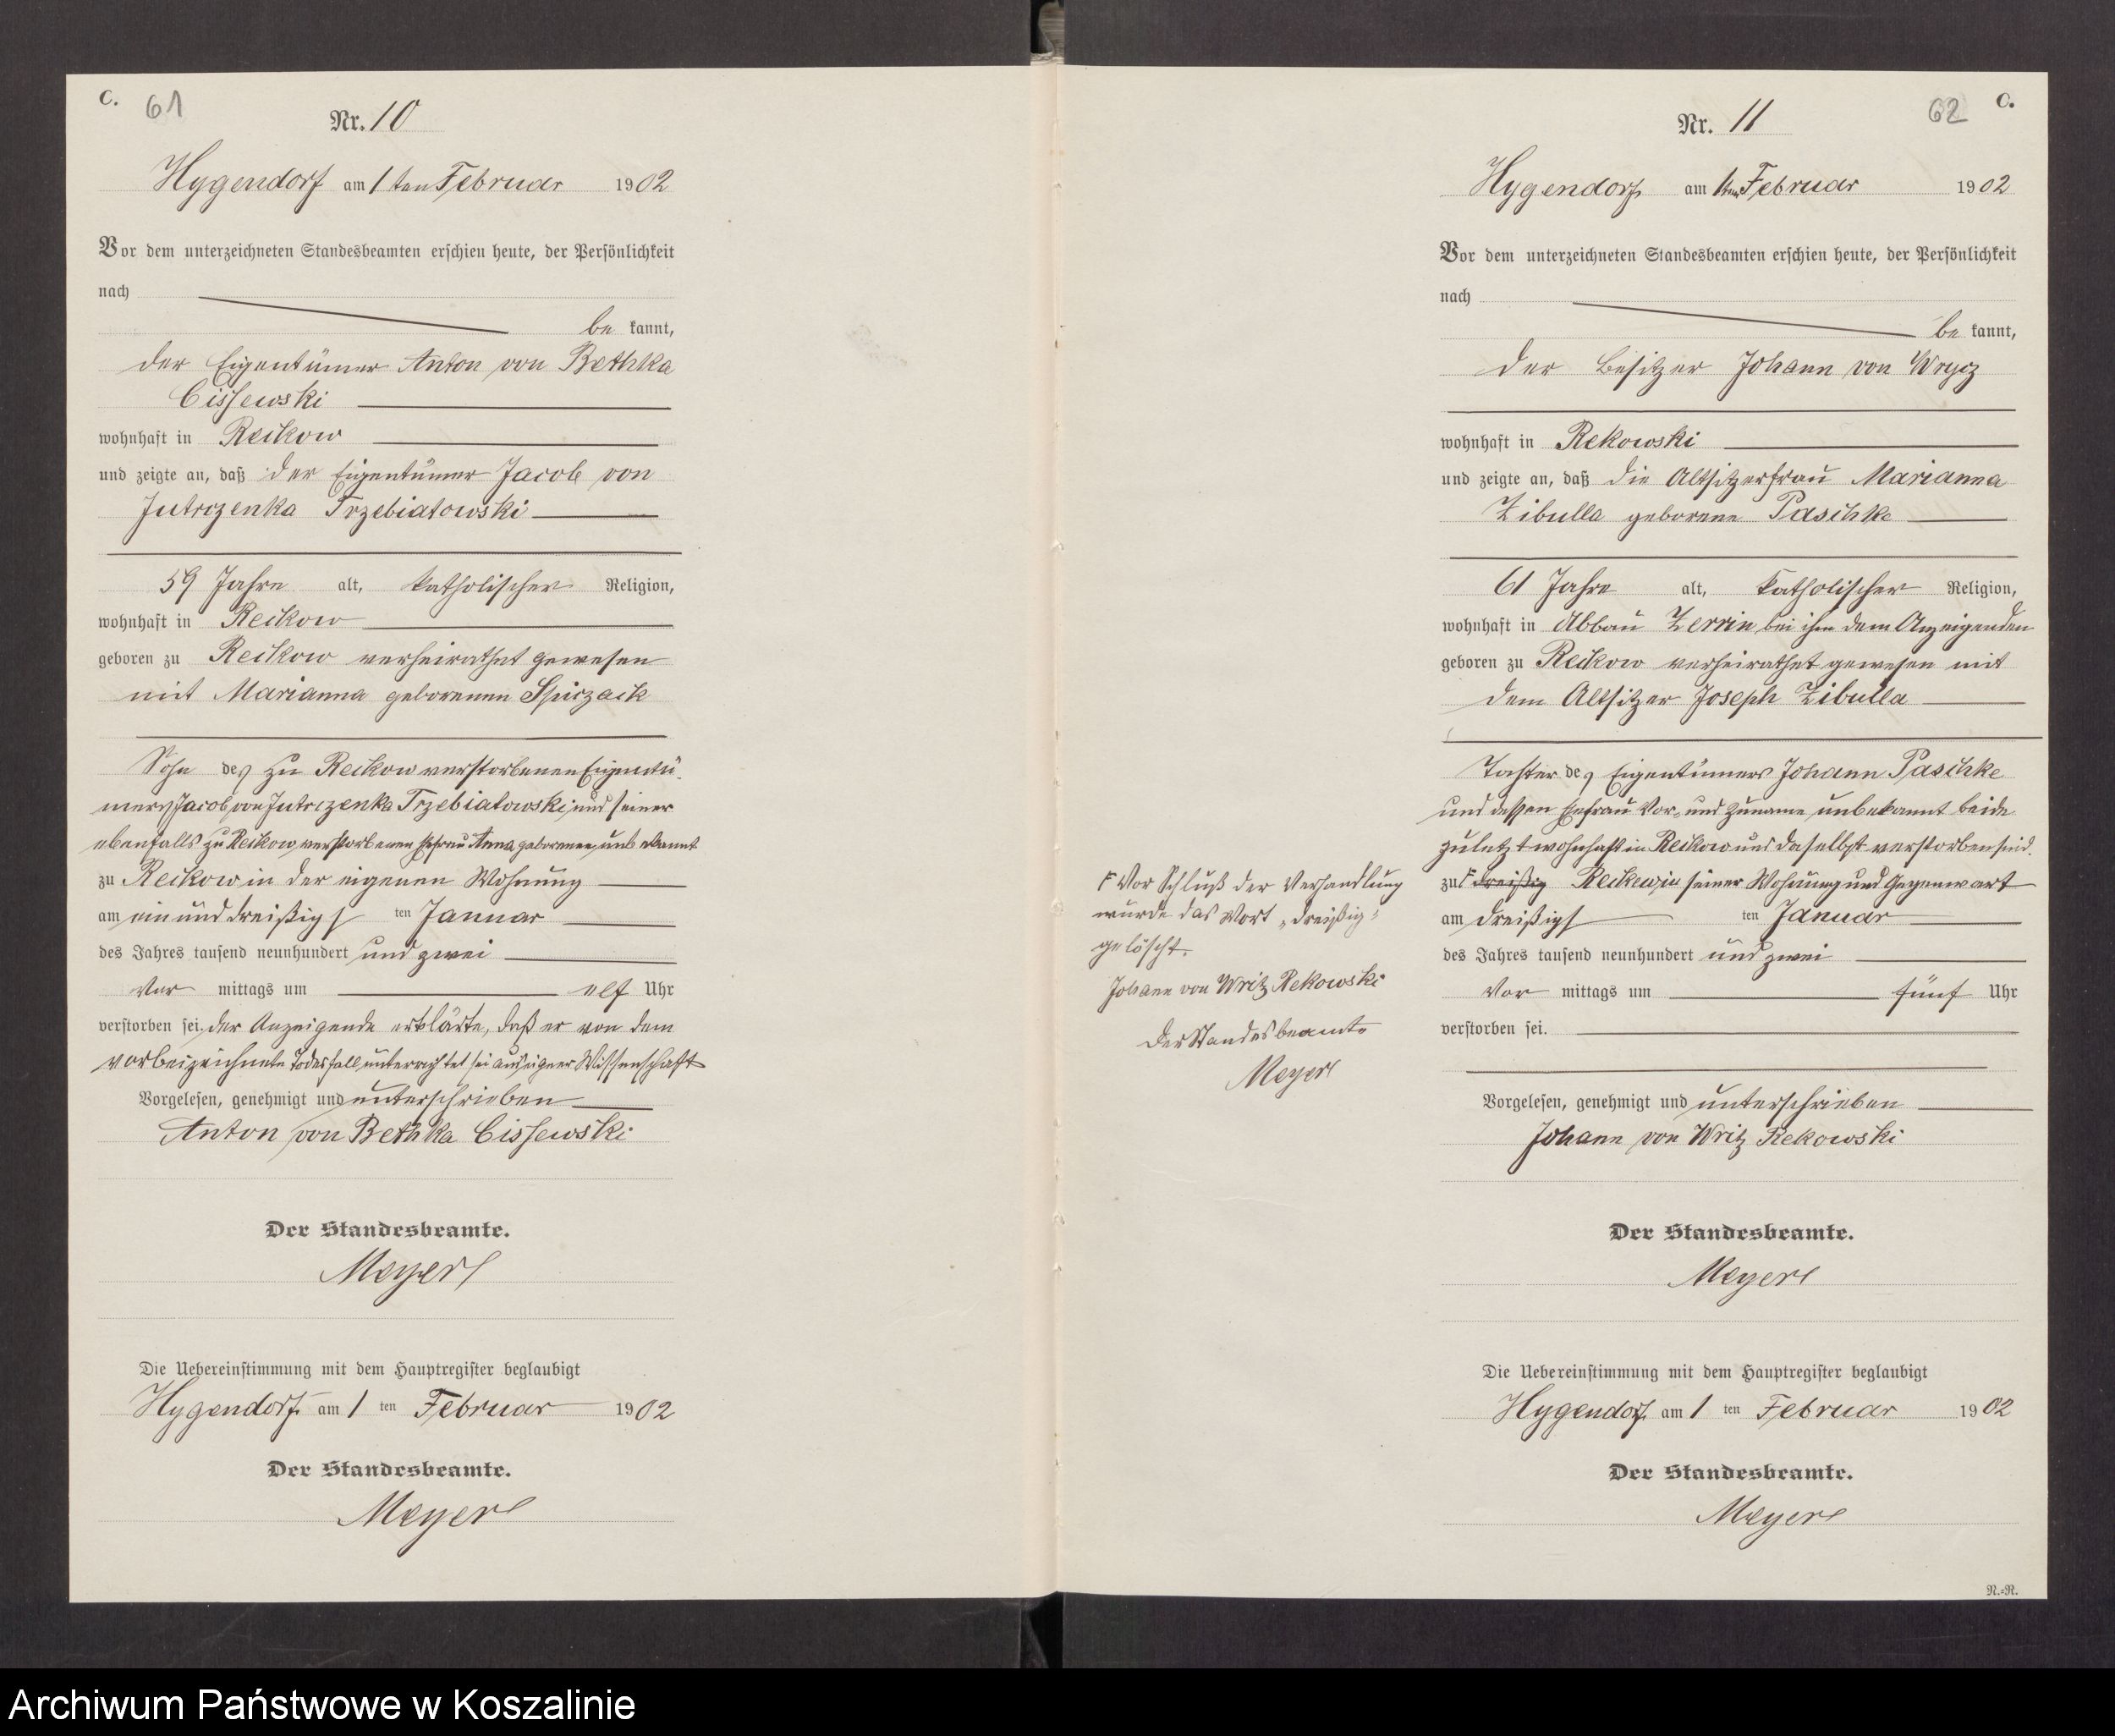 C. 61
Nr. 10
Hygendorf am 1ten Februar 1902
Vor dem unterzeichneten Standesbeamten erschien heute, der Persönlichkeit
nach
be kannt,
der Eigentümer Anton von Bethka
Cissewski
wohnhaft in Reckow
und zeigte an, daß der Eigentümer Jacob von
Jutrzenka Trzebiatowski
59 Jahre alt, katholischer Religion,
wohnhaft in Reckow
geboren zu Reckow verheirathet gewesen
mit Marianna geborenen Spiczack
Sohn des zu Reckow verstorbenen Eigentü-
mers Jacob von Jutrzenka Trzebiatowski und seiner
ebenfalls zu Reckow verstorbenen Ehefrau Anna geborenen unbekannt
zu Reckow in der eigenen Wohnung
am ein und dreißigs ten Januar
des Jahres tausend neunhundert und zwei
Vor mittags um elf Uhr
verstorben sei. der Anzeigende erklärte, daß er von dem
vorbezeichnete Todesfall unterrichtet sei aus eigner Wissenschaft
Vorgelesen, genehmigt und unterschrieben
Anton von Bethka Cissewski
Der Standesbeamte.
Meyer
Die Uebereinstimmung mit dem Hauptregister beglaubigt
Hygendorf am 1 ten Februar 1902
Der Standesbeamte.
Meyer
62 C.
Nr. 11
Hygendorf am 1ten Februar 1902
Vor dem unterzeichneten Standesbeamten erschien heute, der Persönlichkeit
nach
be kannt,
der Besitzer Johann von Wrycz
wohnhaft in Rekowski
und zeigte an, daß die Altsitzerfrau Marianna
Zibulla geborene Paschke
61 Jahre alt, katholischer Religion,
wohnhaft in Abbau Zerrin bei ihm dem Anzeigenden
geboren zu Reckow verheirathet gewesen mit
dem Altsitzer Joseph Zibulla
Tochter des Eigentümers Johann Paschke
und dessen Ehefrau Vor- und Zuname unbekannt beide
zuletzt wohnhaft in Reckow und daselbst verstorben sind.
zu dreißig Reckow in seiner Wohnung und Gegenwart
am dreißigs ten Januar
des Jahres tausend neunhundert und zwei
Vor mittags um fünf Uhr
verstorben sei.
Vorgelesen, genehmigt und unterschrieben
Johann von Writz Rekowski
Der Standesbeamte.
Meyer
Die Uebereinstimmung mit dem Hauptregister beglaubigt
Hygendorf am 1 ten Februar 1902
Der Standesbeamte.
Meyer
N.=N.
Vor Schluß der Verhandlung
wurde das Wort „dreißig"
gelöscht.
Johann von Writz Rekowski
Der Standesbeamte
Meyer
Archiwum Państwowe w Koszalinie